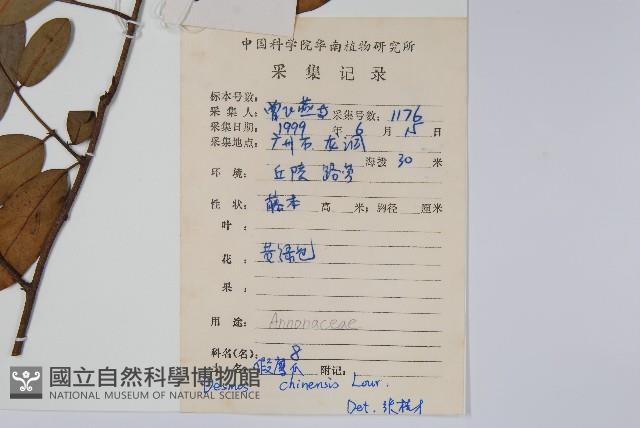 中国科学院华南植物研究所
采集记录
标本号数:
采集人: 曾飞燕 采集号数: 1176
采集日期: 1999 年 6 月 15 日
采集地点: 广州市 龙洞
海拔 30 米
环境: 丘陵 路旁
性状: 藤本 高 米; 胸径 厘米
叶:
花: 黄绿色
果:
用途: Annonaceae
科名(名): 8
假鹰爪 附记:
Desmos chinensis Lour.
Det. 张桂才
國立自然科學博物館
NATIONAL MUSEUM OF NATURAL SCIENCE